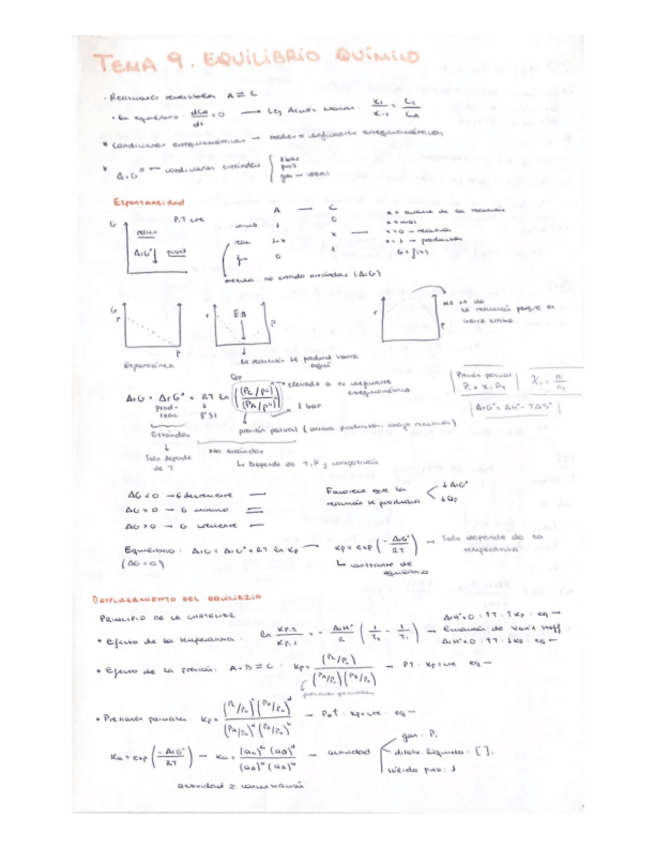 TEMA 9. EQUILIBRIO QUÍMICO
• Reacciones reversibles A ⇌ C
• En equilibrio: dCA/dt = 0 → Ley Acción Masas: K1/K-1 = CC/CA
* Condiciones estequiométricas →
* ΔrG° ← condiciones estándar { 1 bar
puro
gas → ideal
Espontaneidad
A — C
G P,T cte
inicio 1 0
reac 1-x x
fin 0 1
ΔrG°↓
x = avance de la reacción
x=0 → reactivo
x=1 → productos
G = f(x)
mezcla no estado estándar (ΔrG)
G
r
P
EΔ
No se da
la reacción porque
Espontánea
la reacción se produce hasta
aquí
Qp
ΔrG = ΔrG° + RT ln ((PC/P°)/(PA/P°)) → elevado a su coeficiente
estequiométrico
1 bar
8'31
prod-
reac
presión parcial (arriba productos, abajo reactivos)
Presión parcial
Pi = xi PT
Xi = ni/nT
ΔrG° = ΔH° - TΔS°
Estándar
Solo depende
de T
No estándar
↳ Depende de T, P y composición
ΔG < 0 → G decreciente
ΔG = 0 → G mínimo
ΔG > 0 → G creciente
Favorece que la
reacción se produzca < ↓ΔrG°
↓Qp
Equilibrio: ΔrG = ΔrG° + RT ln Kp → Kp = exp(-ΔrG°/RT) → Solo depende de la
temperatura
(ΔG = 0)
↳ constante de
equilibrio
DESPLAZAMIENTO DEL EQUILIBRIO
PRINCIPIO DE LE CHATELIER
• Efecto de la temperatura: ln Kp,2/Kp,1 = - ΔrH°/R (1/T2 - 1/T1) → Ecuación de Van't Hoff
ΔrH°>0 : ↑T : ↑Kp : eq →
ΔrH°<0 : ↑T : ↓Kp : eq ←
• Efecto de la presión: A+B ⇌ C : Kp = (PC/P°)/((PA/P°)(PB/P°)) → P↑ : Kp=cte : eq →
presiones parciales
• Presiones parciales: Kp = (PC/P°)^c (PD/P°)^d / (PA/P°)^a (PB/P°)^b → PA↑ : Kp=cte : eq →
Ka = exp(-ΔrG°/RT) → Ka = (aC)^c (aD)^d / (aA)^a (aB)^b → actividad { gas: Pi
disolv. líquido: [ ]i
sólido puro: 1
actividad ≈ concentración